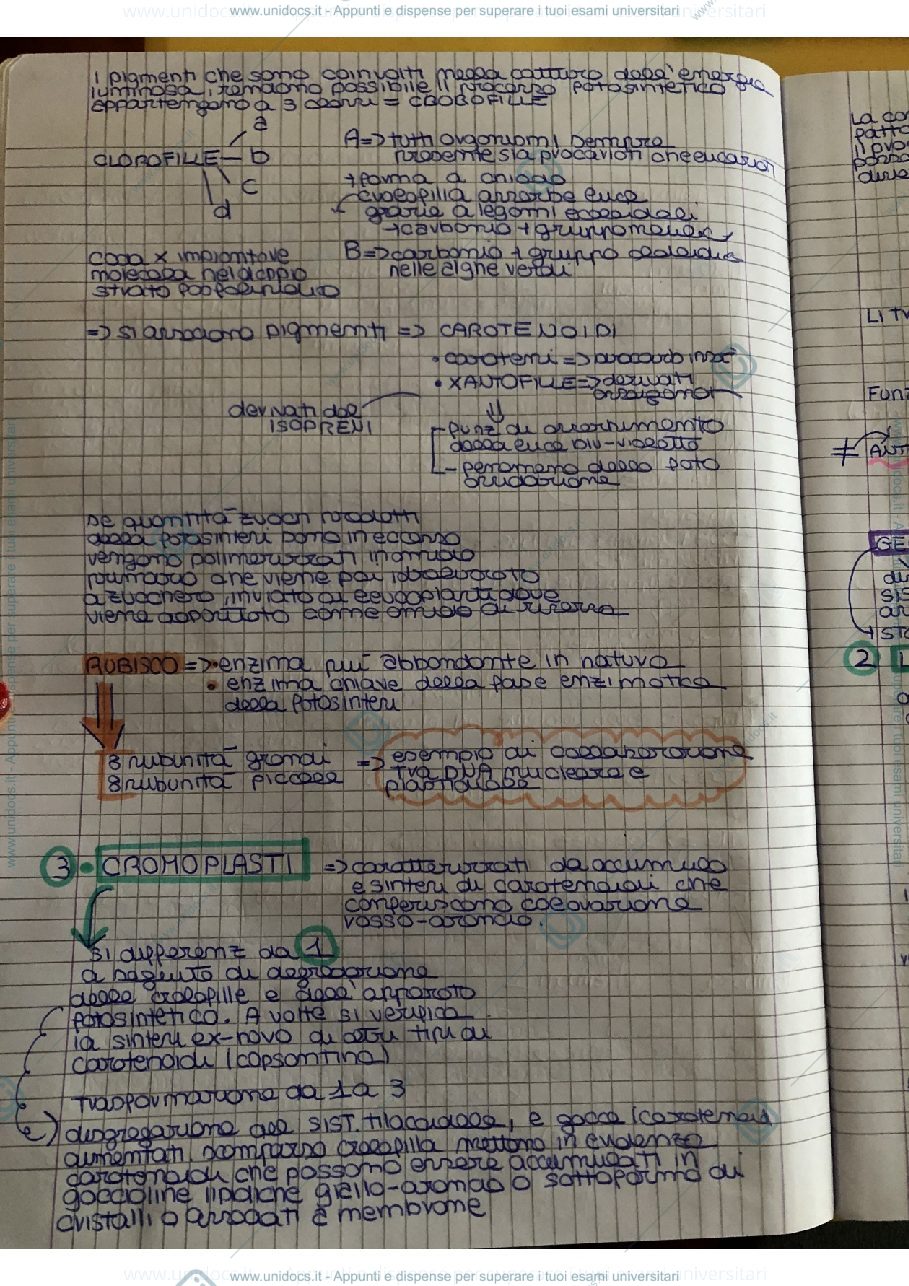 www.unidocs.it - Appunti e dispense per superare i tuoi esami universitari
I pigmenti che sono coinvolti nella cattura dell'energia
luminosa, rendono possibile il processo fotosintetico
appartengono a 3 classi = CLOROFILLE
CLOROFILLE
a
b
c
d
A => tutti organismi sempre
presente sia procarioti che eucarioti
+ forma a
clorofilla assorbe luce
grazie a legami
→ carbonio + gruppo metilex
B => carbonio + gruppo aldeidico
nelle alghe verdi
coda x impiantare
molecola nel doppio
strato fosfolipidico
=> si associano pigmenti => CAROTENOIDI
• caroteni =>
• XANTOFILLE => derivati
ossigenati
derivati dell'
ISOPRENI
- funz di assorbimento
della luce blu-violetto
- fenomeno della foto
ossidazione
Se quantità zuccheri prodotti
dalla fotosintesi sono in eccesso
vengono polimerizzati in amido
primario che viene poi idrolizzato
a zucchero, inviato ai leucoplasti dove
viene depositato come amido di riserva
RUBISCO => • enzima più abbondante in natura
• enzima chiave della fase enzimatica
della fotosintesi
8 subunità grandi
8 subunità piccole
=> esempio di collaborazione
tra DNA nucleare e
plastidiale
3 • CROMOPLASTI => caratterizzati da accumulo
e sintesi di carotenoidi che
conferiscono colorazione
rosso-arancio.
Si differenz da 1
a seguito di degradazione
delle clorofille e dell'apparato
fotosintetico. A volte si verifica
la sintesi ex-novo di altri tipi di
carotenoidi (capsantina)
Trasformazione da 1 a 3
disgregazione del SIST. tilacoidale, e gocce (carotenoidi
aumentati, scomparsa clorofilla mettono in evidenza
carotenoidi che possono essere accumulati in
goccioline lipidiche giallo-arancio o sottoforma di
cristalli o associati a membrane
La
LI
Funz
≠
GE
di
SIS
2
www.unidocs.it - Appunti e dispense per superare i tuoi esami universitari